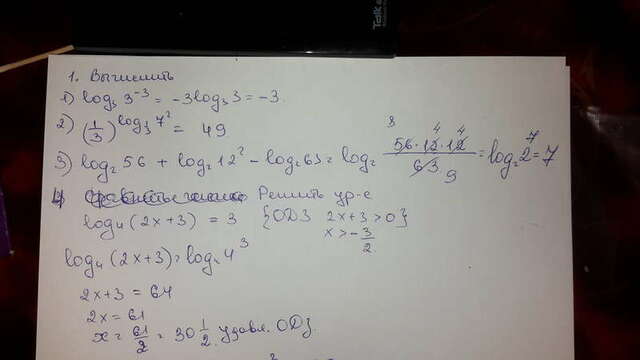 Talk
1. Вычислить
1) log₃ 3⁻³ = -3log₃ 3 = -3.
2) (1/3)^(log_(1/3) 7²) = 49
3) log₂ 56 + log₂ 12² - log₂ 63 = log₂ (56·12·12)/63 = log₂ 2⁷ = 7
8 4 4
9
4) Решить ур-е
log₄ (2x+3) = 3 {ОДЗ 2x+3 >0}
x > -3/2.
log₄ (2x+3) = log₄ 4³
2x+3 = 64
2x = 61
x = 61/2 = 30 1/2. удовл. ОДЗ.